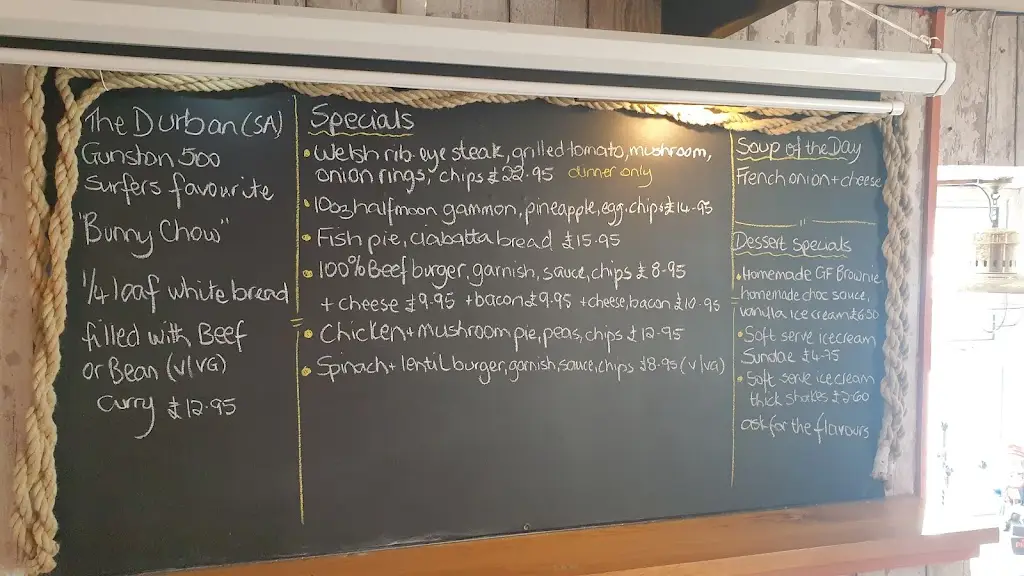 The Durban (SA)
Gunston 500
Surfers favourite
"Bunny Chow"
1/4 loaf white bread
filled with Beef
or Bean (V/VG)
Curry £12.95
Specials
• Welsh rib-eye steak, grilled tomato, mushroom,
onion rings, chips £22.95 dinner only
• 10oz halfmoon gammon, pineapple, egg, chips £14.95
• Fish pie, ciabatta bread £15.95
• 100% Beef burger, garnish, sauce, chips £8.95
+ cheese £9.95 + bacon £9.95 + cheese, bacon £10.95
• Chicken + mushroom pie, peas, chips £12.95
• Spinach + lentil burger, garnish, sauce, chips £8.95 (V/VG)
Soup of the Day
French onion + cheese
Dessert Specials
• Homemade GF Brownie
homemade choc sauce,
vanilla ice cream £6.50
• Soft serve icecream
Sundae £4.75
• Soft serve ice cream
thick shakes
ask for the flavours